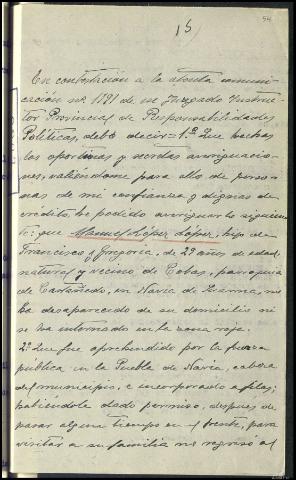 15
54
En contestación a la atenta comuni-
cación nº 1191 de ese Juzgado Instruc-
tor Provincial de Responsabilidades
Políticas, debo decir: 1º Que hechas
las oportunas y secretas averiguacio-
nes, valiéndome para ello de perso-
nas de mi confianza y dignas de
crédito, he podido averiguar lo siguien-
te: que Manuel López López, hijo de
Francisco y Gregoria, de 29 años de edad,
natural y vecino de Cobas, parroquia
de Castañedo, en Navia de Suarna, no
ha desaparecido de su domicilio ni
se ha internado en la zona roja.
2º Que fue aprehendido por la fuerza
pública en la Puebla de Navia, cabeza
del municipio, e incorporado a filas;
habiéndole dado permiso, después de
pasar algún tiempo en el frente, para
visitar a su familia no regresó al